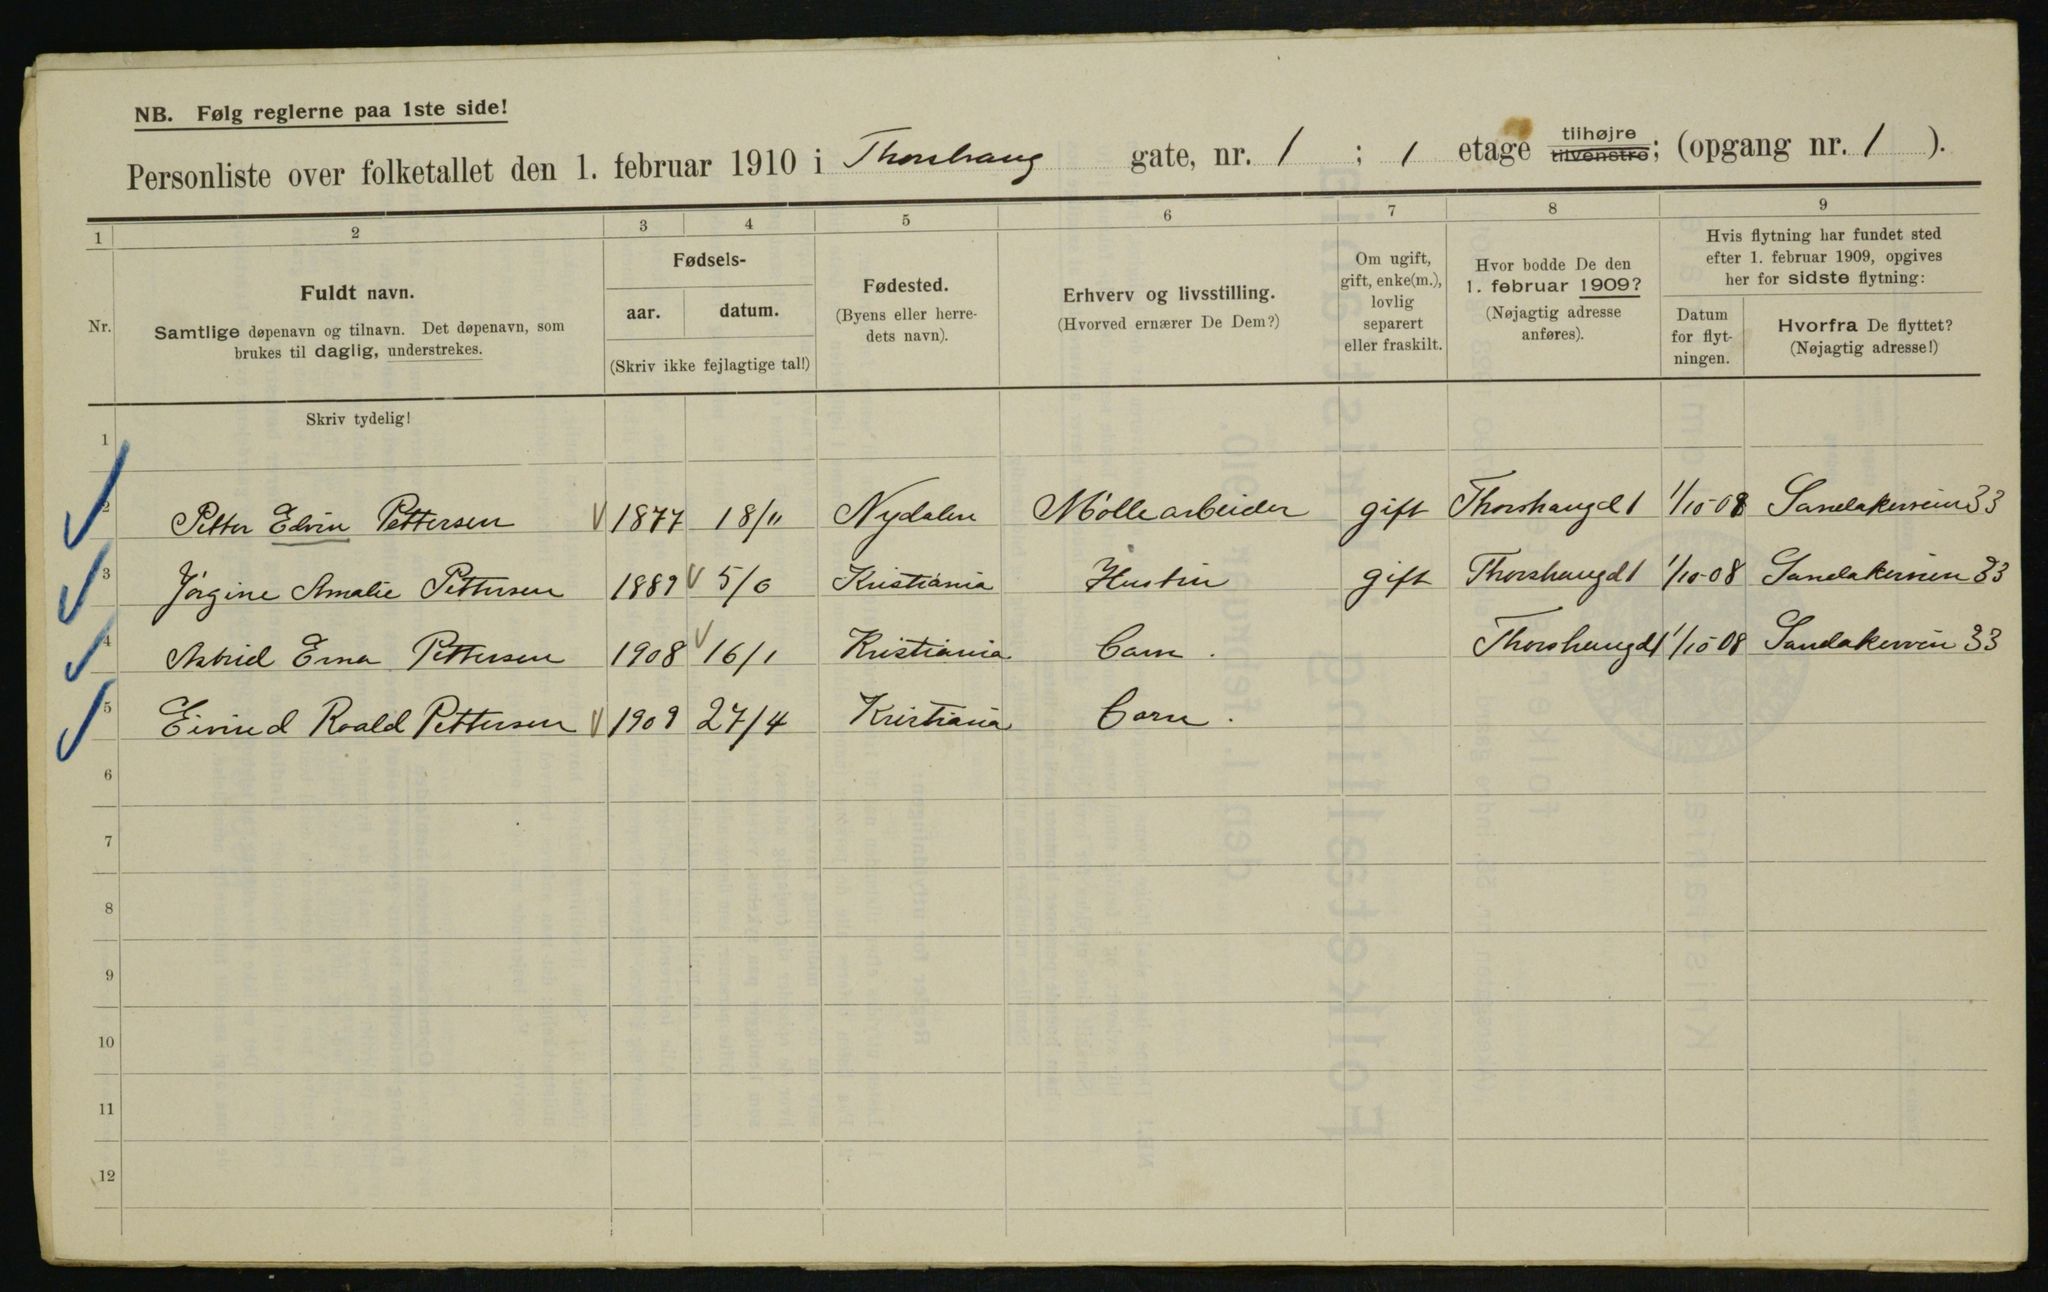 NB. Følg reglerne paa 1ste side!
Personliste over folketallet den 1. februar 1910 i Thorshaug gate, nr. 1 ; 1 etage tilhøjre tilvenstre; (opgang nr. 1 ).
1 2 3 4 5 6 7 8 9
Nr.
Fuldt navn.
Samtlige døpenavn og tilnavn. Det døpenavn, som
brukes til daglig, understrekes.
Fødsels-
aar. datum.
(Skriv ikke fejlagtige tal!)
Fødested.
(Byens eller herre-
dets navn).
Erhverv og livsstilling.
(Hvorved ernærer De Dem?)
Om ugift,
gift, enke(m.),
lovlig
separert
eller fraskilt.
Hvor bodde De den
1. februar 1909?
(Nøjagtig adresse
anføres).
Hvis flytning har fundet sted
efter 1. februar 1909, opgives
her for sidste flytning:
Datum
for flyt-
ningen.
Hvorfra De flyttet?
(Nøjagtig adresse!)
Skriv tydelig!
1
2 Petter Edvin Pettersen 1877 18/11 Nydalen Møllearbeider gift Thorshaugd 1 1/10-08 Sandakerveien 33
3 Jørgine Amalie Pettersen 1889 5/6 Kristiania Hustru gift Thorshaugd 1 1/10-08 Sandakerveien 33
4 Astrid Erna Pettersen 1908 16/1 Kristiania Barn. Thorshaugd 1 1/10-08 Sandakerveien 33
5 Eivind Roald Pettersen 1909 27/4 Kristiania Barn.
6
7
8
9
10
11
12